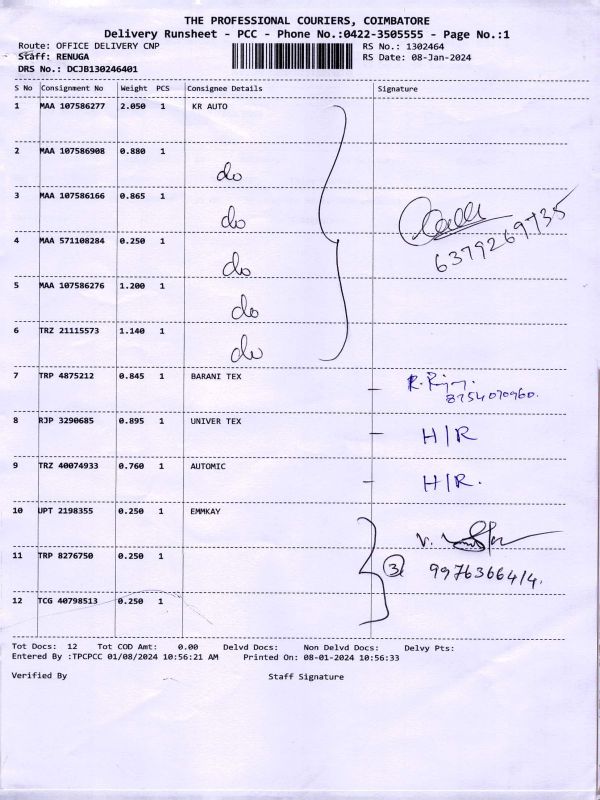 THE PROFESSIONAL COURIERS, COIMBATORE
Delivery Runsheet - PCC - Phone No.:0422-3505555 - Page No.:1
Route: OFFICE DELIVERY CNP RS No.: 1302464
Staff: RENUGA RS Date: 08-Jan-2024
DRS No.: DCJB130246401
S No Consignment No Weight PCS Consignee Details Signature
1 MAA 107586277 2.050 1 KR AUTO
2 MAA 107586908 0.880 1
do
3 MAA 107586166 0.865 1
do
6379269735
4 MAA 571108284 0.250 1
do
5 MAA 107586276 1.200 1
do
6 TRZ 21115573 1.140 1
do
7 TRP 4875212 0.845 1 BARANI TEX
8754070960.
8 RJP 3290685 0.895 1 UNIVER TEX
H/R
9 TRZ 40074933 0.760 1 AUTOMIC
H/R.
10 UPT 2198355 0.250 1 EMMKAY
11 TRP 8276750 0.250 1
3 9976366414.
12 TCG 40798513 0.250 1
Tot Docs: 12 Tot COD Amt: 0.00 Delvd Docs: Non Delvd Docs: Delvy Pts:
Entered By :TPCPCC 01/08/2024 10:56:21 AM Printed On: 08-01-2024 10:56:33
Verified By Staff Signature